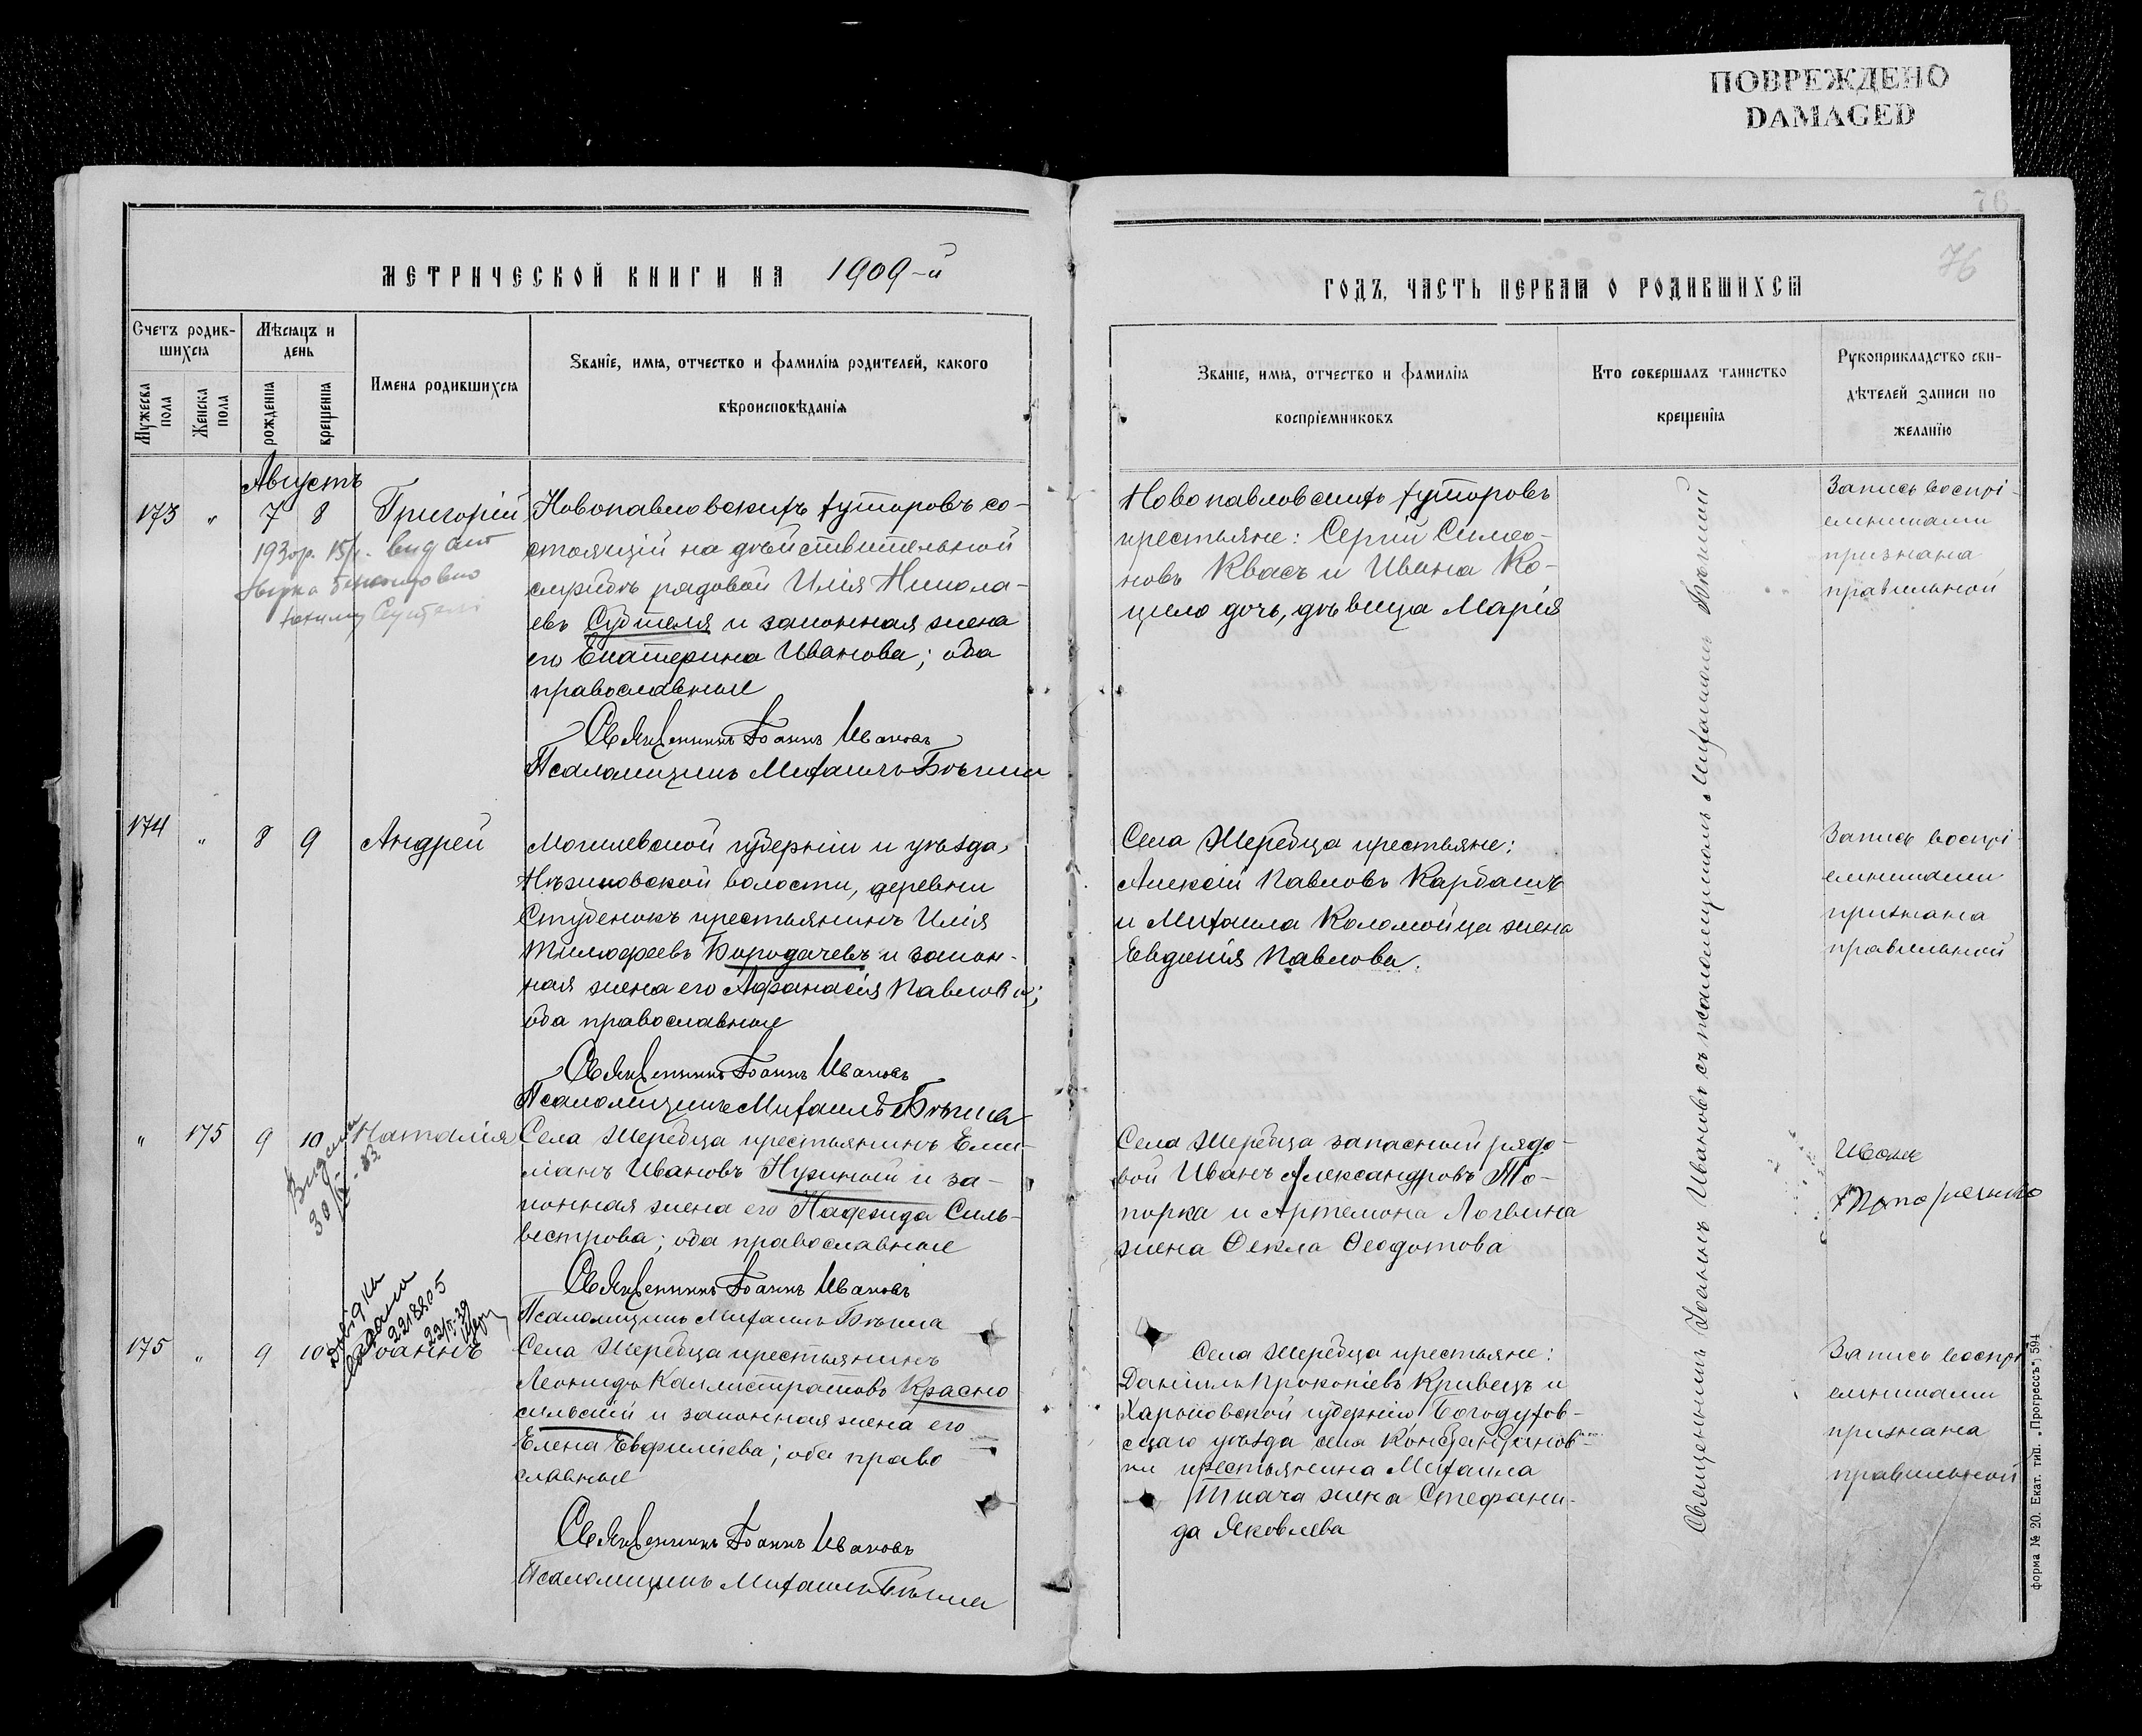 ПОВРЕЖДЕНО
DAMAGED
76
76
МЕТРИЧЕСКОЙ КНИГИ НА 1909-й
ГОДЪ, ЧАСТЬ ПЕРВАЯ О РОДИВШИХСЯ
Счетъ родив-
шихся
Мужеска пола
Женска пола
Мѣсяцъ и
день
рожденія
крещенія
Имена родившихся
Званіе, имя, отчество и фамилія родителей, какого
вѣроисповѣданія
Званіе, имя, отчество и фамилія
воспріемниковъ
Кто совершалъ таинство
крещенія
Рукоприкладство сви-
дѣтелей записи по
желанію
Августъ
173 " 7 8 Григорій
Новопавловскихъ хуторовъ со-
стоящій на дѣйствительной
службѣ рядовой Илія Никола-
евъ Субтеля и законная жена
его Екатерина Иванова; оба
православные
Священникъ Іоаннъ Ивановъ
Псаломщикъ Михаилъ
Новопавловскихъ хуторовъ
крестьяне: Сергій Симео-
новъ Квасъ и Ивана Ко-
цило дочь, дѣвица Марія
Запись воспрі-
емниками
признана
правильной
174 " 8 9 Андрей
Могилевской губерніи и уѣзда,
волости, деревни
Студенокъ крестьянинъ Илія
Тимофеевъ Бородачевъ и закон-
ная жена его Афанасія Павлова;
оба православные
Священникъ Іоаннъ Ивановъ
Псаломщикъ Михаилъ
Села Жеребца крестьяне:
Алексій Павловъ Карбашъ
и Михаила Коломойца жена
Евдокія Павлова.
Запись воспрі-
емниками
признана
правильной
" 175 9 10 Наталія
Села Жеребца крестьянинъ Еми-
ліанъ Ивановъ Нужный и за-
конная жена его Надежда Силь-
вестрова; оба православные
Священникъ Іоаннъ Ивановъ
Псаломщикъ Михаилъ
Села Жеребца запасный рядо-
вой Иванъ Александровъ То-
порка и Артемона Логвина
жена Ѳекла Ѳеодотова
Иванъ
175 " 9 10 Іоаннъ
2218805
Села Жеребца крестьянинъ
Леонидъ Каллистратовъ Красно
сельскій и законная жена его
Елена Евфиміева; оба право
славные
Священникъ Іоаннъ Ивановъ
Псаломщикъ Михаилъ
Села Жеребца крестьяне:
Даніилъ Прокопіевъ Кривецъ и
Харьковской губерніи Богодухов-
скаго уѣзда села Константинов-
ки крестьянина Михаила
Ткача жена Стефани-
да Яковлева
Запись воспрі
емниками
признана
правильной
Священникъ Іоаннъ Ивановъ съ псаломщикомъ Михаиломъ
форма № 20. Екат. тип. „Прогрессъ", 594